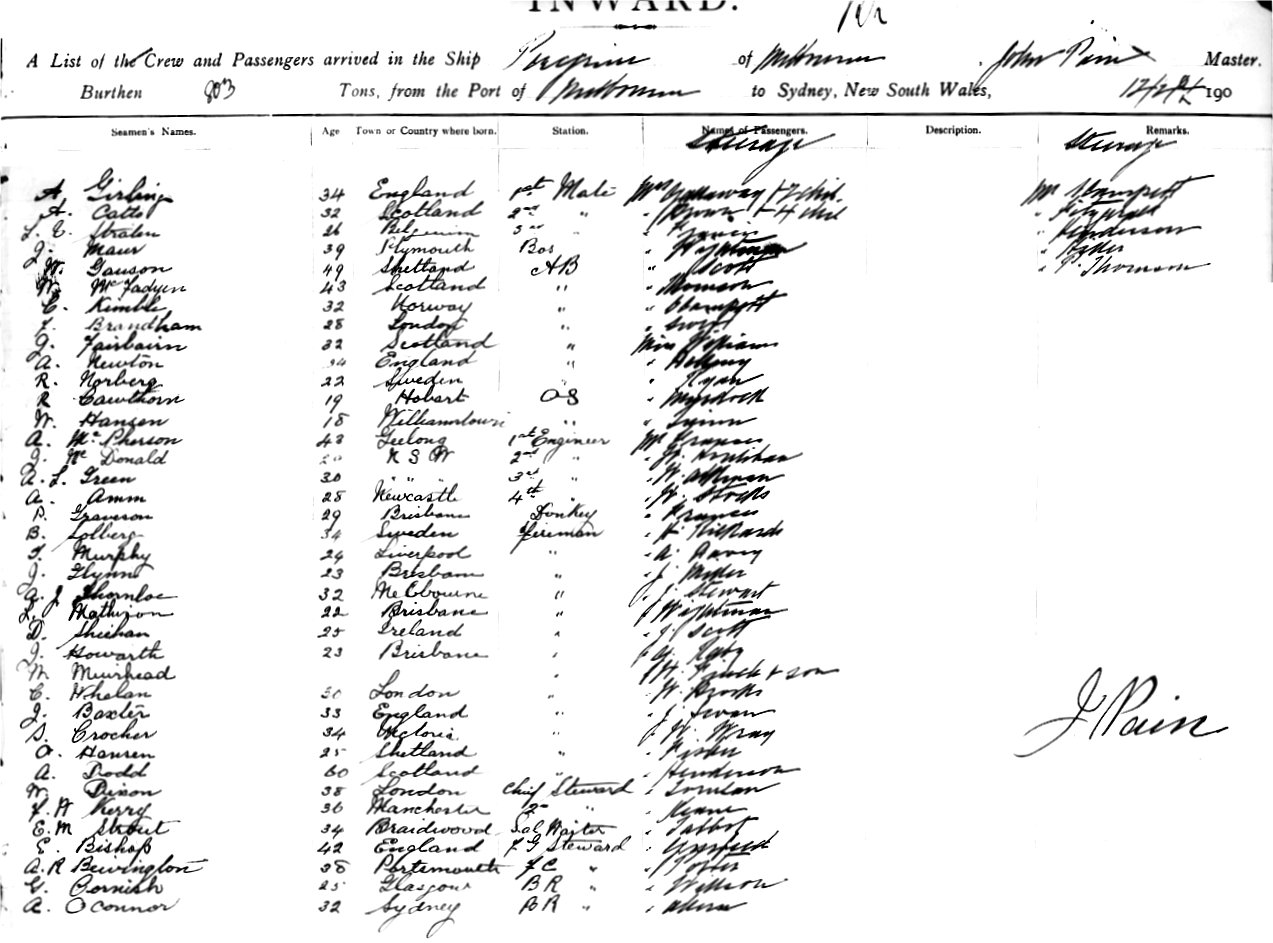 INWARD.
A List of the Crew and Passengers arrived in the Ship Peregrine of Melbourne, John Pain Master.
Burthen 803 Tons, from the Port of Melbourne to Sydney, New South Wales, 190
Seamen's Names. Age Town or Country where born. Station. Names of Passengers. Description. Remarks.
Steerage Steerage
A. Girling 34 England 1st Mate Mrs
A. Catto 32 Scotland 2nd " " Brown + 4 chil " Fitzgerald
L. E. Stralen 26 Belgium 3rd " " Henderson
J. Maur 39 Plymouth Bos "
W. Gauson 49 Shetland AB " Scott " P. Thomson
W. McFadyen 43 Scotland " " Thomson
C. Kimble 32 Norway " "
F. Brandham 28 London " " Swift
J. Fairbairn 32 Scotland " Miss Williams
A. Newton 34 England " "
R. Norberg 22 Sweden " " Ryan
R Cawthorn 19 Hobart OS " Murdock
W. Hansen 18 Williamstown " "
A. McPherson 43 Geelong 1st Engineer Mr Francis
J. McDonald N S W 2nd " "
A. L. Green 30 " " " 3rd " "
A. Amm 28 Newcastle 4th " " W. Stocks
P. Graverson 29 Brisbane Donkey " Francis
B. Solberg 34 Sweden Fireman " H. Rickards
T. Murphy 24 Liverpool " " A. Davey
J. Glynn 23 Brisbane " " J. Miller
A. J. Thornloe 32 Melbourne " " J. Stewart
L. Mathison 22 Brisbane " " Wightman
D. Sheehan 25 Ireland " " J. Scott
J. Howarth 23 Brisbane " "
M. Muirhead " " H. Finch & son
C. Whelan 30 London " " W. Brooks
J. Baxter 33 England " " J. Swan
S. Crocher 34 Victoria " " W. Wray
A. Hansen 25 Shetland " " Fisher
A. Dodd 60 Scotland " " Henderson
W. Dixon 38 London Chief Steward "
F. H Kerry 36 Manchester 2nd " " Keane
E. M Strout 34 Braidwood Sal Waiter " Talbot
E. Bishop 42 England F G Steward "
A. R Bevington 38 Portsmouth F C " " Porter
G. Cornish 25 Glasgow B R " " Willson
A. O'Connor 32 Sydney B R " "
J Pain